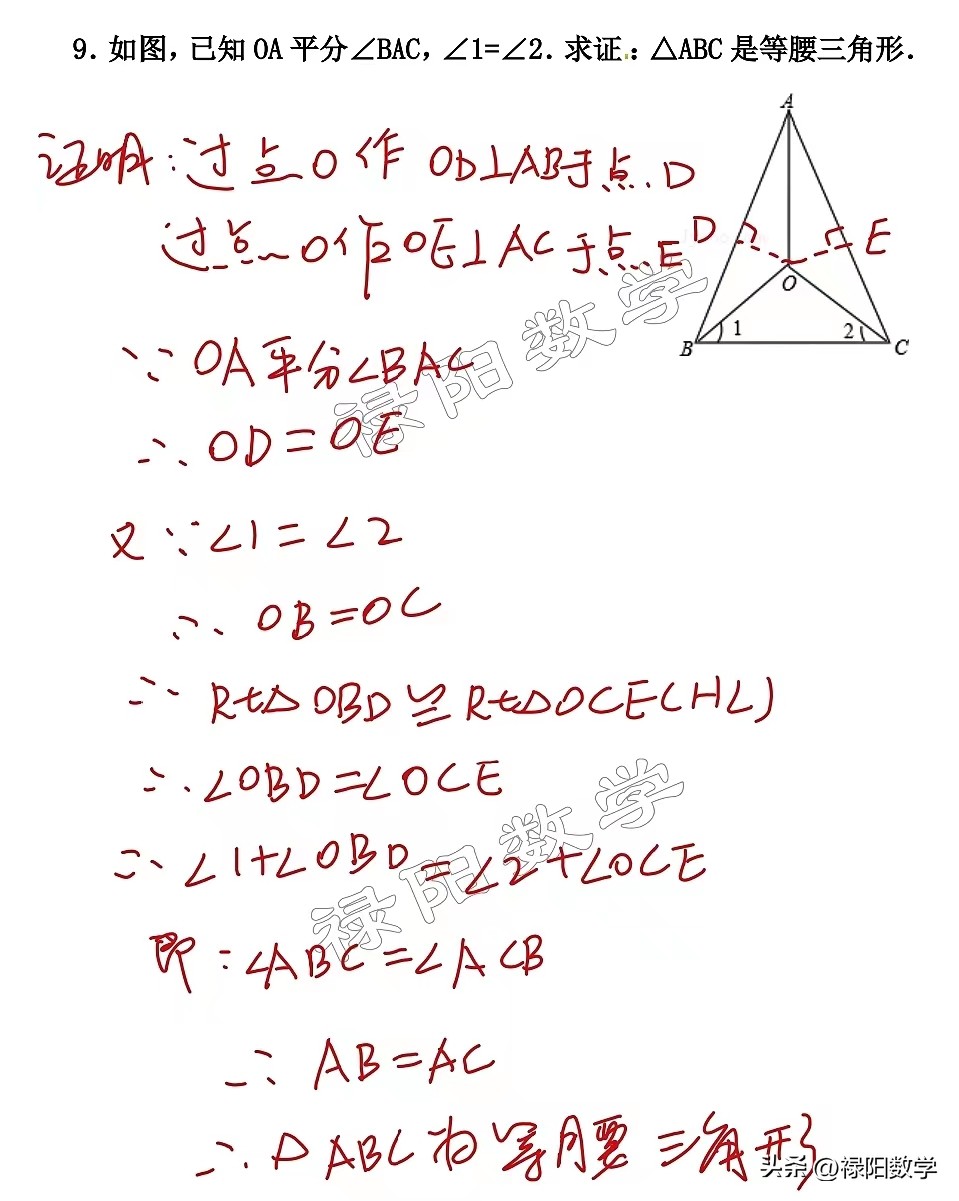 9. 如图，已知 OA 平分∠BAC，∠1=∠2. 求证：△ABC 是等腰三角形.
证明：过点O作 OD⊥AB于点D
过点O作OE⊥AC于点E
A
D
E
O
B
1
2
C
∵ OA平分∠BAC
∴ OD=OE
又∵∠1=∠2
∴ OB=OC
∴ Rt△OBD≌Rt△OCE(HL)
∴ ∠OBD=∠OCE
∴ ∠1+∠OBD=∠2+∠OCE
即：∠ABC=∠ACB
∴ AB=AC
∴ △ABC为等腰三角形
禄阳数学
禄阳数学
头条 @禄阳数学